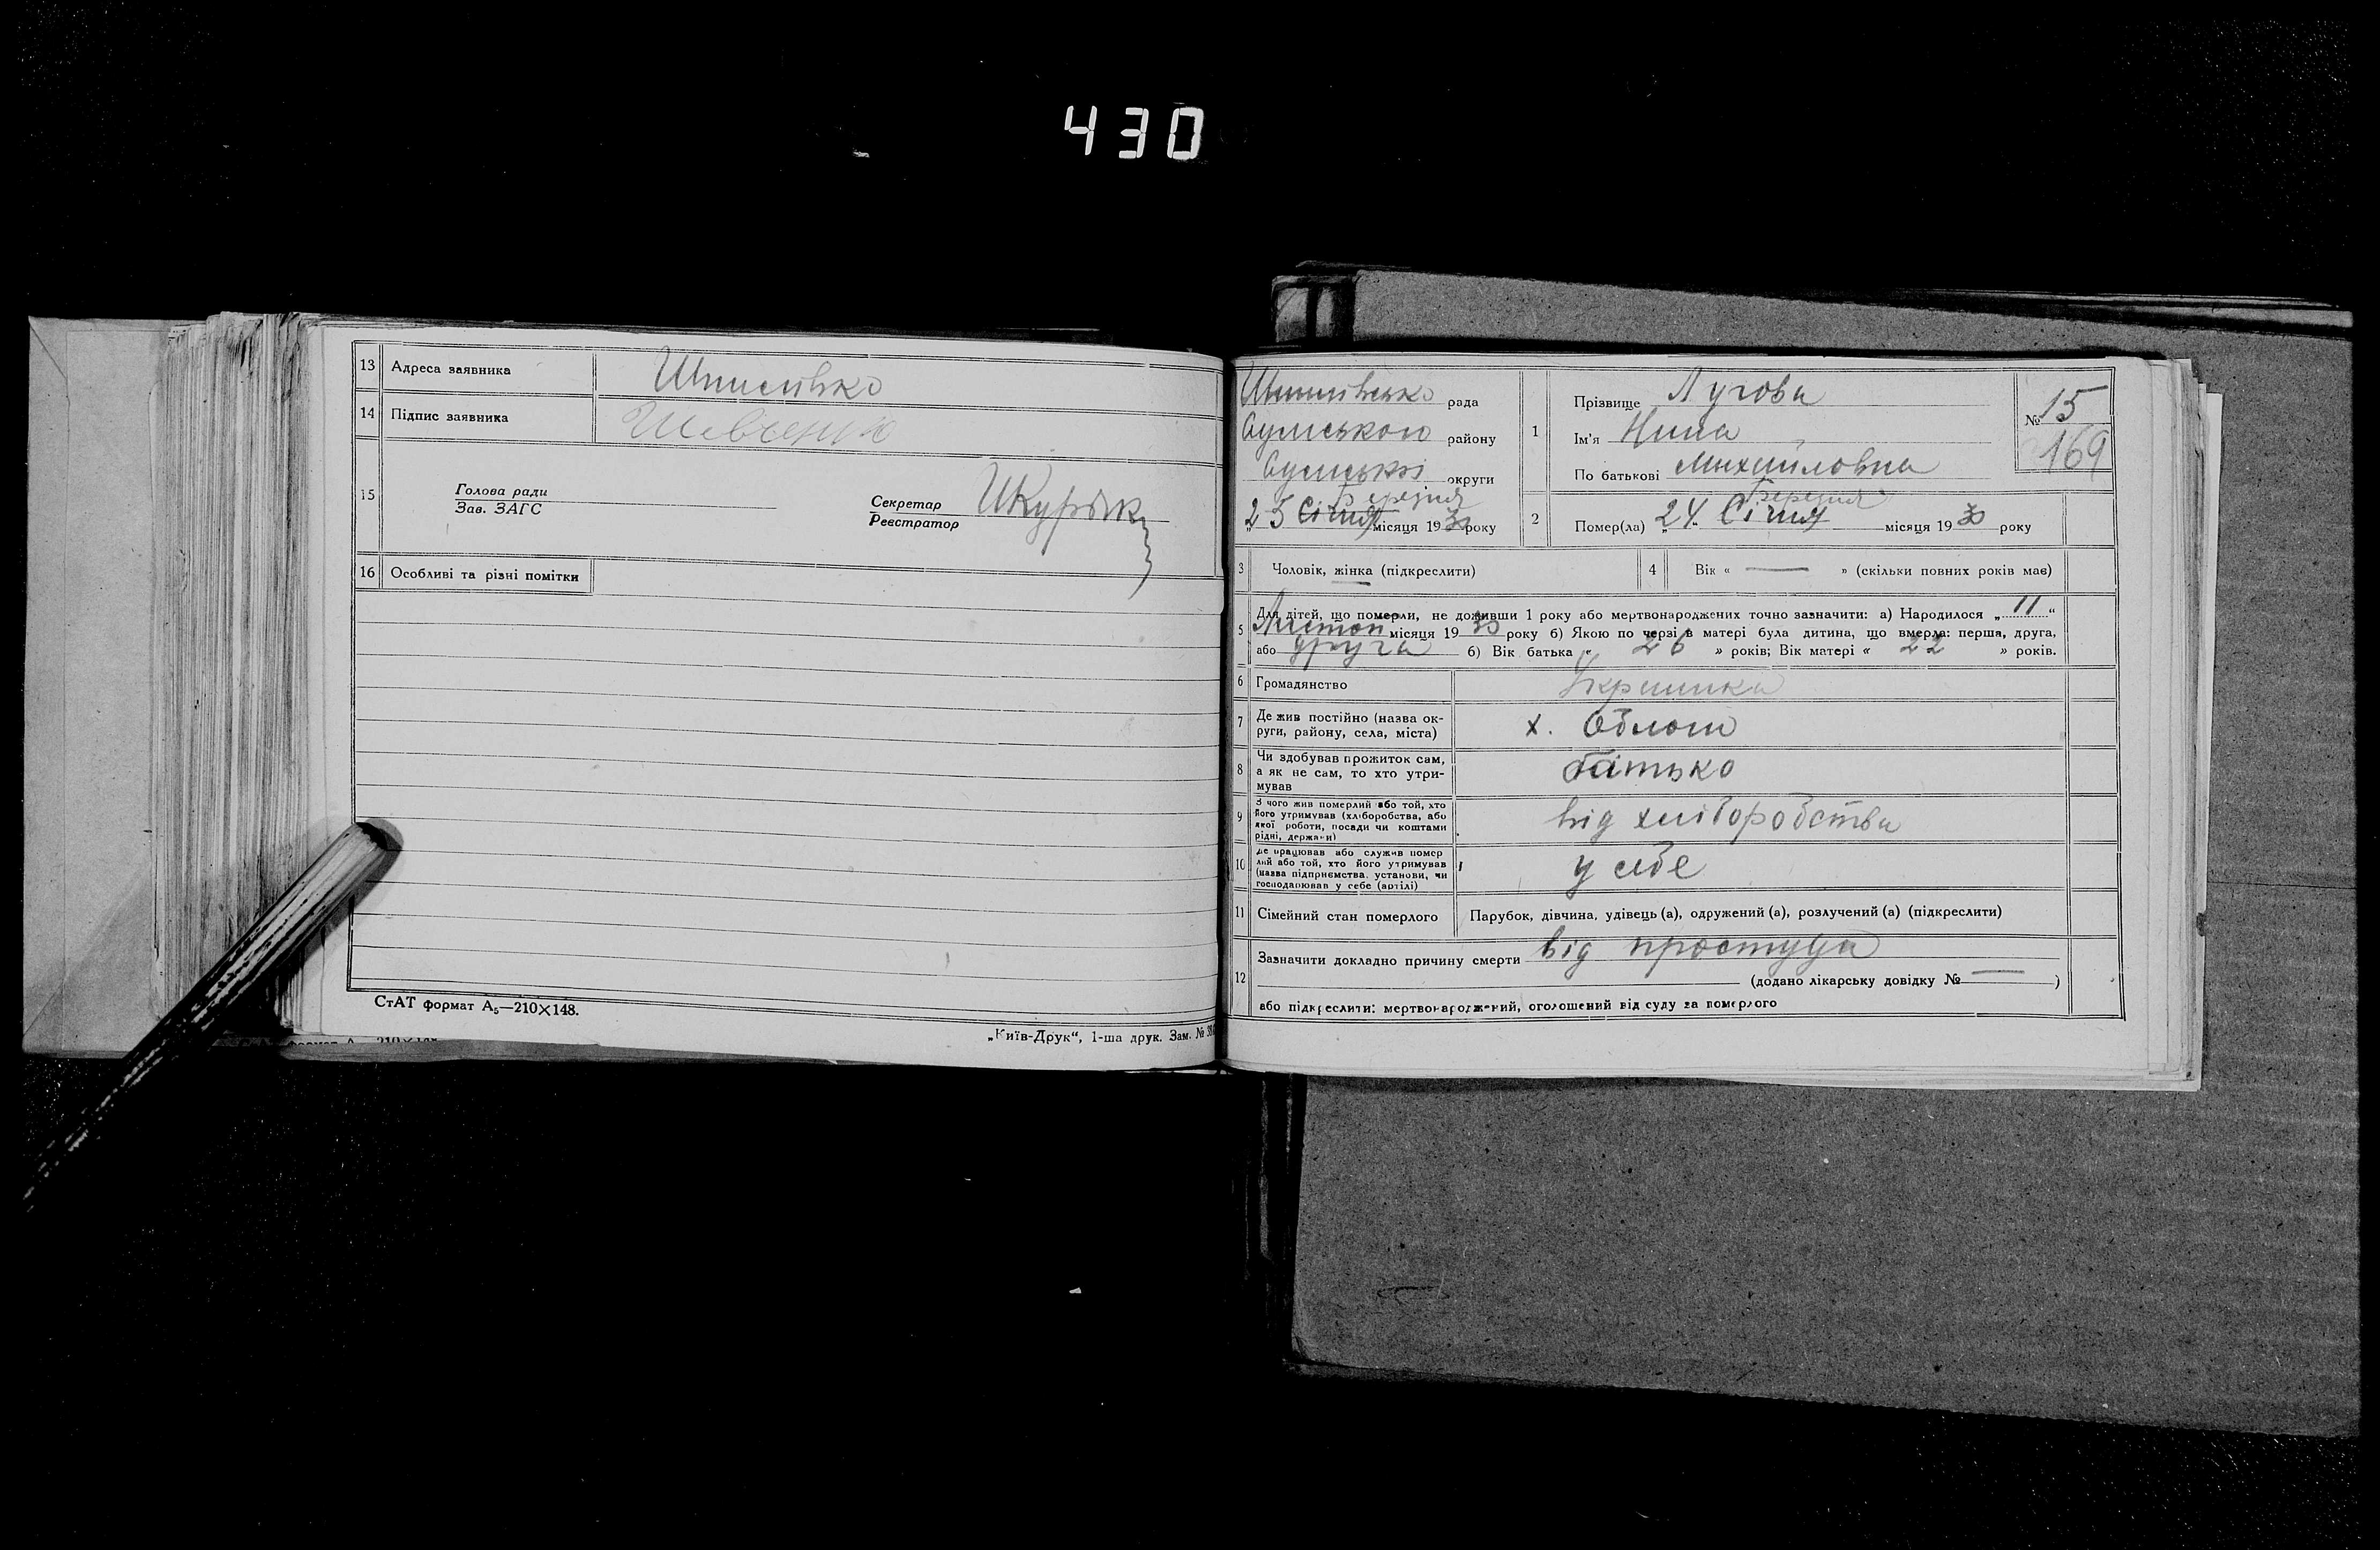 430
13 Адреса заявника
14 Підпис заявника
15 Голова ради
Зав. ЗАГС
Секретар
Реєстратор
16 Особливі та різні помітки
СтАТ формат А₅—210×148.
„Київ-Друк“, 1-ша друк. Зам. №
рада
Сумського району
Сумської округи
Березня
25 Січня місяця 1930 року
1 Прізвище Лугова
Ім'я Нина
По батькові Михайловна
№ 15
169
Березня
2 Помер(ла) „24“ Січня місяця 1930 року
3 Чоловік, жінка (підкреслити)
4 Вік « — » (скільки повних років має)
5 Для дітей, що померли, не доживши 1 року або мертвонароджених точно зазначити: а) Народилося „11“
Листоп місяця 1930 року б) Якою по черзі в матері була дитина, що вмерла: перша, друга,
або друга б) Вік батька « 26 » років; Вік матері « 22 » років.
6 Громадянство
7 Де жив постійно (назва ок-
руги, району, села, міста)
х. Облоги
8 Чи здобував прожиток сам,
а як не сам, то хто утри-
мував
батько
9 З чого жив померлий або той, хто
його утримував (хліборобства, або
якої роботи, посади чи коштами
рідні, держави)
від хліборобства
10 Де працював або служив помер
лий або той, хто його утримував
(назва підприємства, установи, чи
господарював у себе (артілі)
у себе
11 Сімейний стан померлого
Парубок, дівчина, удівець (а), одружений (а), розлучений (а) (підкреслити)
12 Зазначити докладно причину смерти від простуда
(додано лікарську довідку № — )
або підкреслити: мертвонароджений, оголошений від суду за померлого